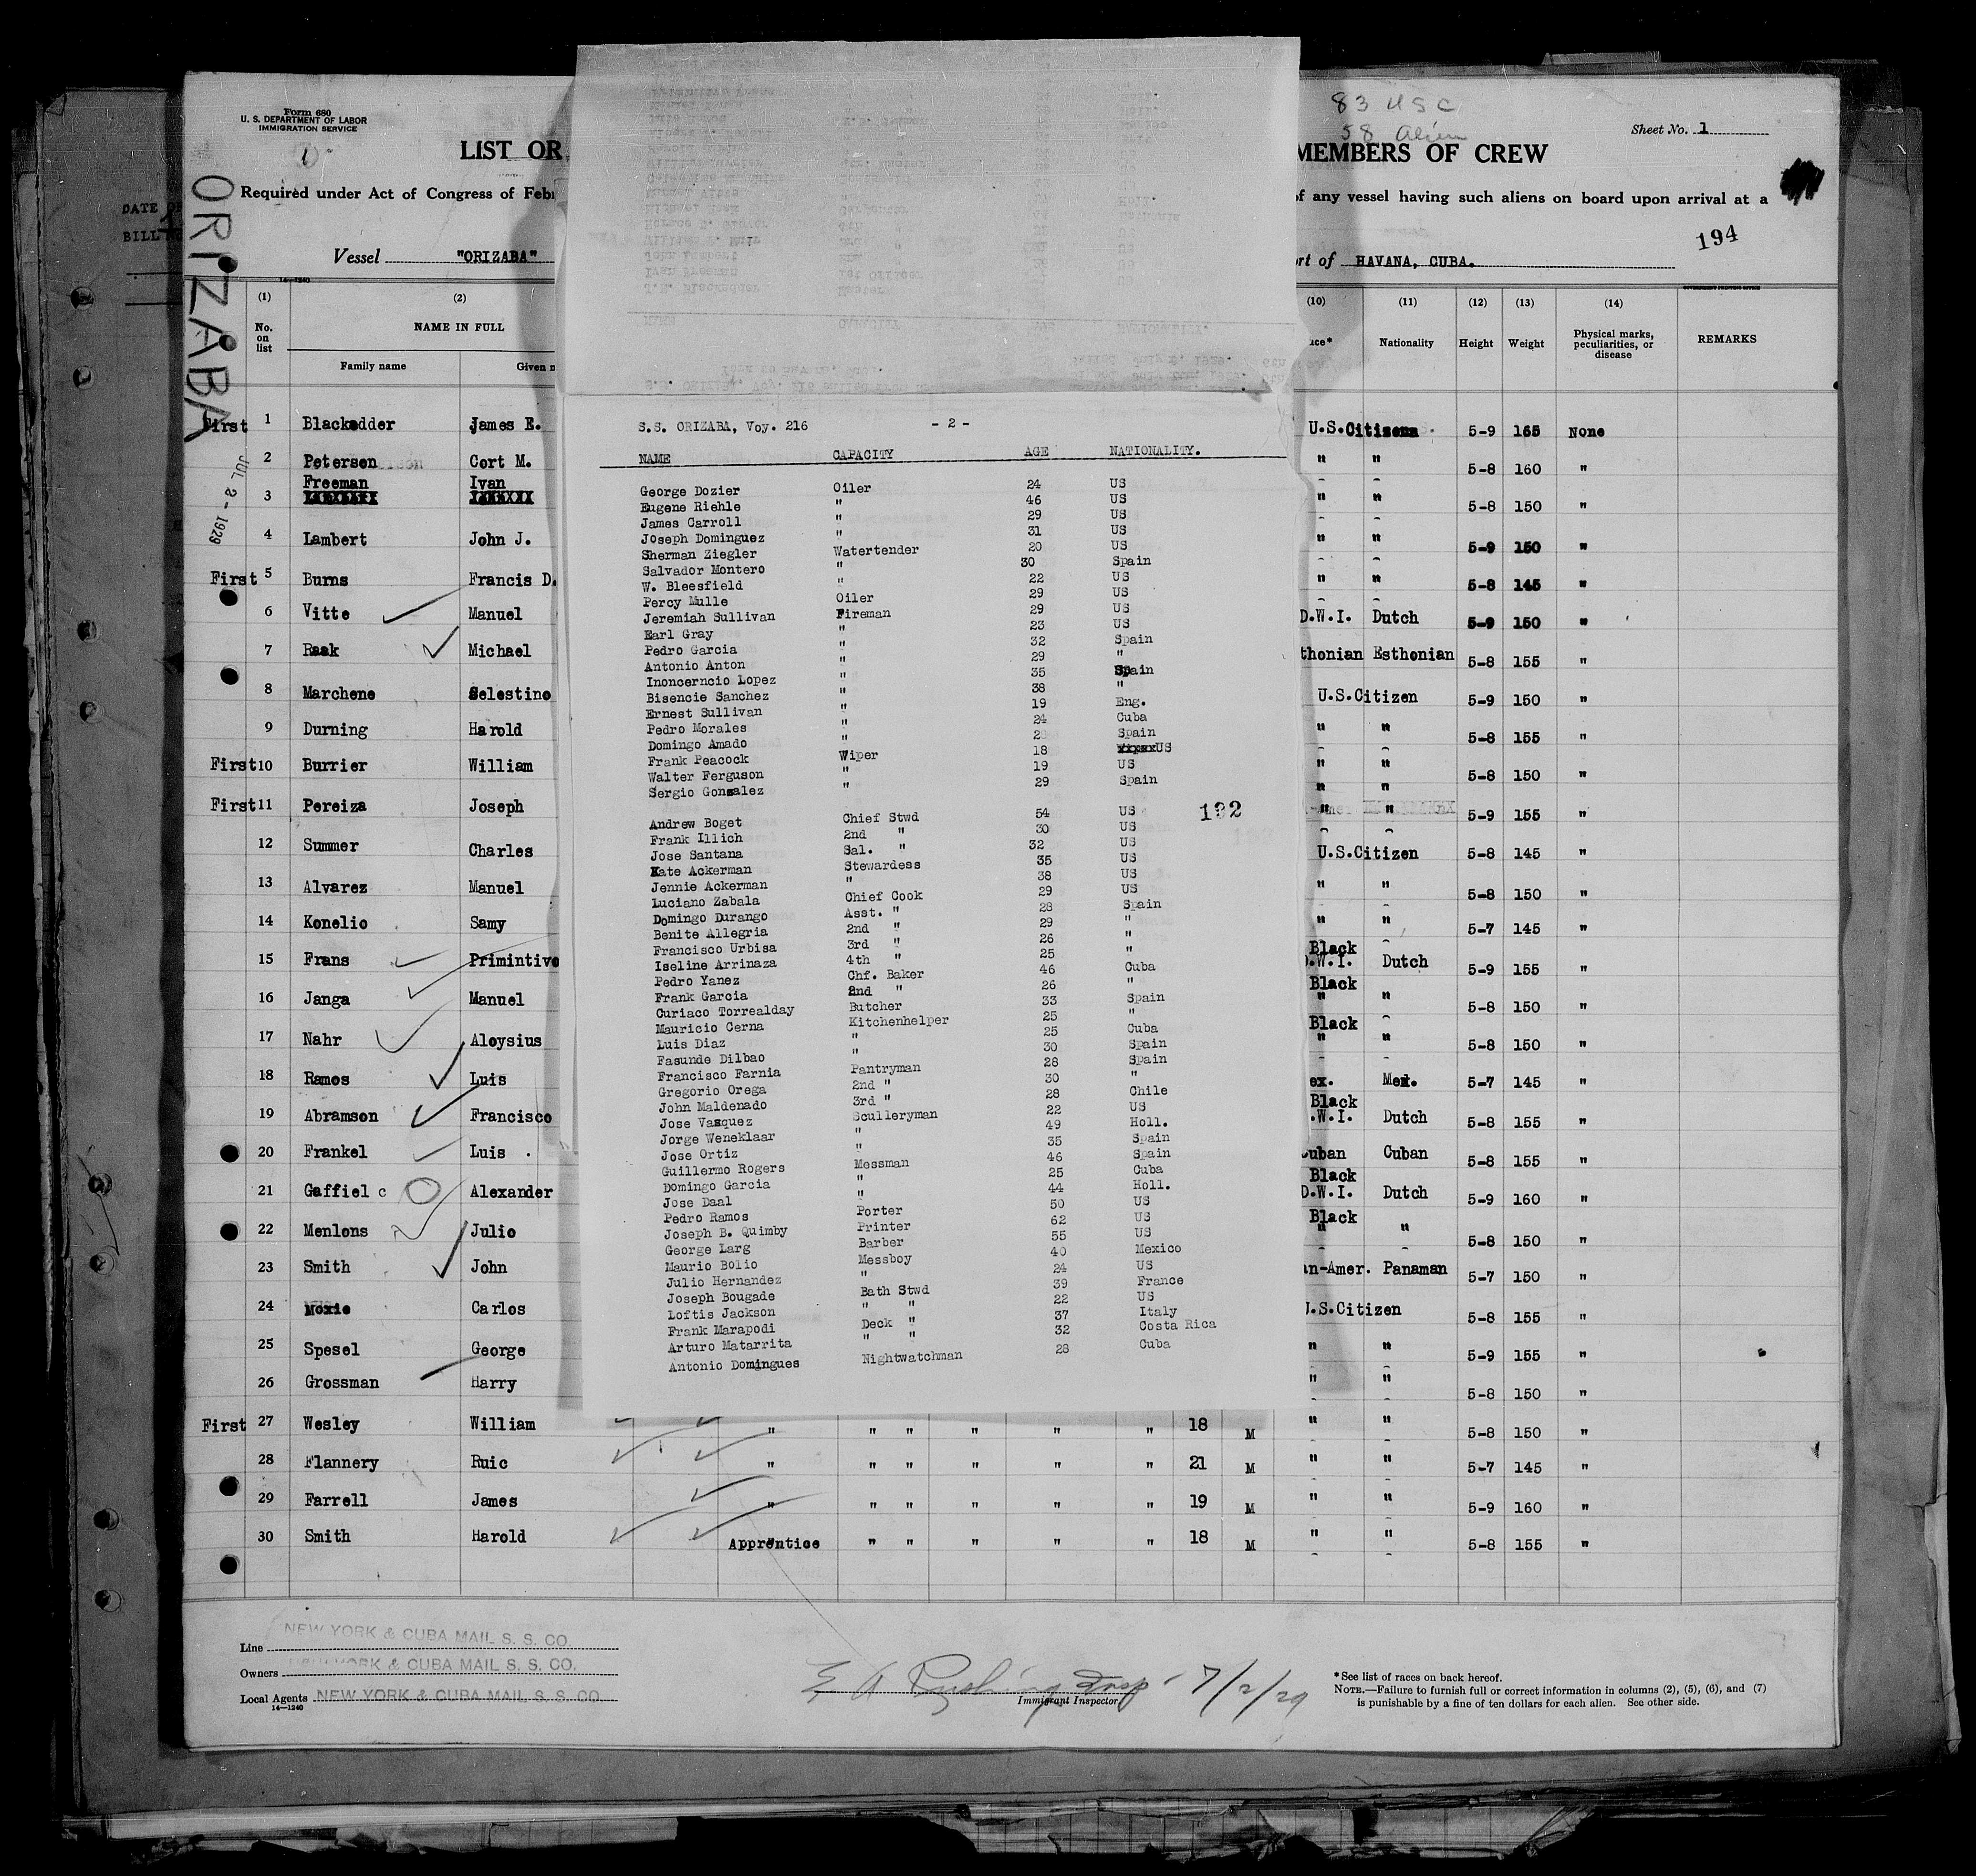 Form 680
U. S. DEPARTMENT OF LABOR
IMMIGRATION SERVICE
83 USC
58 Alien
Sheet No. 1
LIST OR
MEMBERS OF CREW
Required under Act of Congress of Febr
of any vessel having such aliens on board upon arrival at a
194
ORIZABA
JUL 2 - 1929
DATE OF
BILL
Vessel "ORIZABA"
rt of HAVANA, CUBA.
14-1240
(1) (2) (10) (11) (12) (13) (14)
No. on list NAME IN FULL Nationality Height Weight Physical marks, peculiarities, or disease REMARKS
Family name Given n
First 1 Blackadder James E. U.S.Citizens 5-9 165 None
2 Petersen Cort M. " " 5-8 160 "
Freeman Ivan
3 " " 5-8 150 "
4 Lambert John J. " " 5-9 150 "
First 5 Burns Francis D. " " 5-8 145 "
6 Vitte Manuel D.W.I. Dutch 5-9 150 "
7 Raak Michael thonian Esthonian 5-8 155 "
8 Marchene Selestino U.S.Citizen 5-9 150 "
9 Durning Harold " " 5-8 155 "
First 10 Burrier William " " 5-8 150 "
First 11 Pereiza Joseph " " 5-9 155 "
12 Summer Charles U.S.Citizen 5-8 145 "
13 Alvarez Manuel " " 5-8 150 "
14 Konelio Samy " " 5-7 145 "
15 Frans Primintivo Black D.W.I. Dutch 5-9 155 "
16 Janga Manuel Black " " 5-8 150 "
17 Nahr Aloysius Black " " 5-8 150 "
18 Ramos Luis ex. Mex. 5-7 145 "
19 Abramson Francisco Black .W.I. Dutch 5-8 155 "
20 Frankel Luis . Cuban Cuban 5-8 155 "
21 Gaffiel c Alexander Black D.W.I. Dutch 5-9 160 "
22 Menlons Julio Black " " 5-8 150 "
23 Smith John an-Amer. Panaman 5-7 150 "
24 Moxie Carlos U.S.Citizen 5-8 155 "
25 Spesel George " " 5-9 155 "
26 Grossman Harry " " 5-8 150 "
First 27 Wesley William " " " " " " 18 M " " 5-8 150 "
28 Flannery Ruic " " " " " " 21 M " " 5-7 145 "
29 Farrell James " " " " " " 19 M " " 5-9 160 "
30 Smith Harold Apprentice " " " " " 18 M " " 5-8 155 "
S.S. ORIZABA, Voy. 216 - 2 -
NAME CAPACITY AGE NATIONALITY.
George Dozier Oiler 24 US
Eugene Riehle " 46 US
James Carroll " 29 US
Joseph Dominguez " 31 US
Sherman Ziegler Watertender 20 US
Salvador Montero " 30 Spain
W. Bleesfield " 22 US
Percy Mulle Oiler 29 US
Jeremiah Sullivan Fireman 29 US
Earl Gray " 23 US
Pedro Garcia " 32 Spain
Antonio Anton " 29 "
Inoncerncio Lopez " 35 Spain
Bisencie Sanchez " 38 "
Ernest Sullivan " 19 Eng.
Pedro Morales " 24 Cuba
Domingo Amado " 2 Spain
Frank Peacock Wiper 18 US
Walter Ferguson " 19 US
Sergio Gonzalez " 29 Spain
192
Andrew Boget Chief Stwd 54 US
Frank Illich 2nd " 30 US
Jose Santana Sal. " 32 US
Kate Ackerman Stewardess 35 US
Jennie Ackerman " 38 US
Luciano Zabala Chief Cook 29 US
Domingo Durango Asst. " 28 Spain
Benite Allegria 2nd " 29 "
Francisco Urbisa 3rd " 26 "
Iseline Arrinaza 4th " 25
Pedro Yanez Chf. Baker 46 Cuba
Frank Garcia 2nd " 26 "
Curiaco Torrealday Butcher 33 Spain
Mauricio Cerna Kitchenhelper 25 "
Luis Diaz " 25 Cuba
Fasunde Dilbao " 30 Spain
Francisco Farnia Pantryman 28 Spain
Gregorio Orega 2nd " 30 "
John Maldenado 3rd " 28 Chile
Jose Vazquez Sculleryman 22 US
Jorge Weneklaar " 49 Holl.
Jose Ortiz " 35 Spain
Guillermo Rogers Messman 46 Spain
Domingo Garcia " 25 Cuba
Jose Daal " 44 Holl.
Pedro Ramos Porter 50 US
Joseph B. Quimby Printer 62 US
George Larg Barber 55 US
Maurio Bolio Messboy 40 Mexico
Julio Hernandez " 24 US
Joseph Bougade Bath Stwd 39 France
Loftis Jackson " " 22 US
Frank Marapodi Deck " 37 Italy
Arturo Matarrita " " 32 Costa Rica
Antonio Domingues Nightwatchman 28 Cuba
Line NEW YORK & CUBA MAIL S. S. CO.
Owners NEW YORK & CUBA MAIL S. S. CO.
Local Agents NEW YORK & CUBA MAIL S. S. CO.
14-1240
E A Rushing Insp - 7/2/29
Immigrant Inspector
*See list of races on back hereof.
NOTE.—Failure to furnish full or correct information in columns (2), (5), (6), and (7)
is punishable by a fine of ten dollars for each alien. See other side.